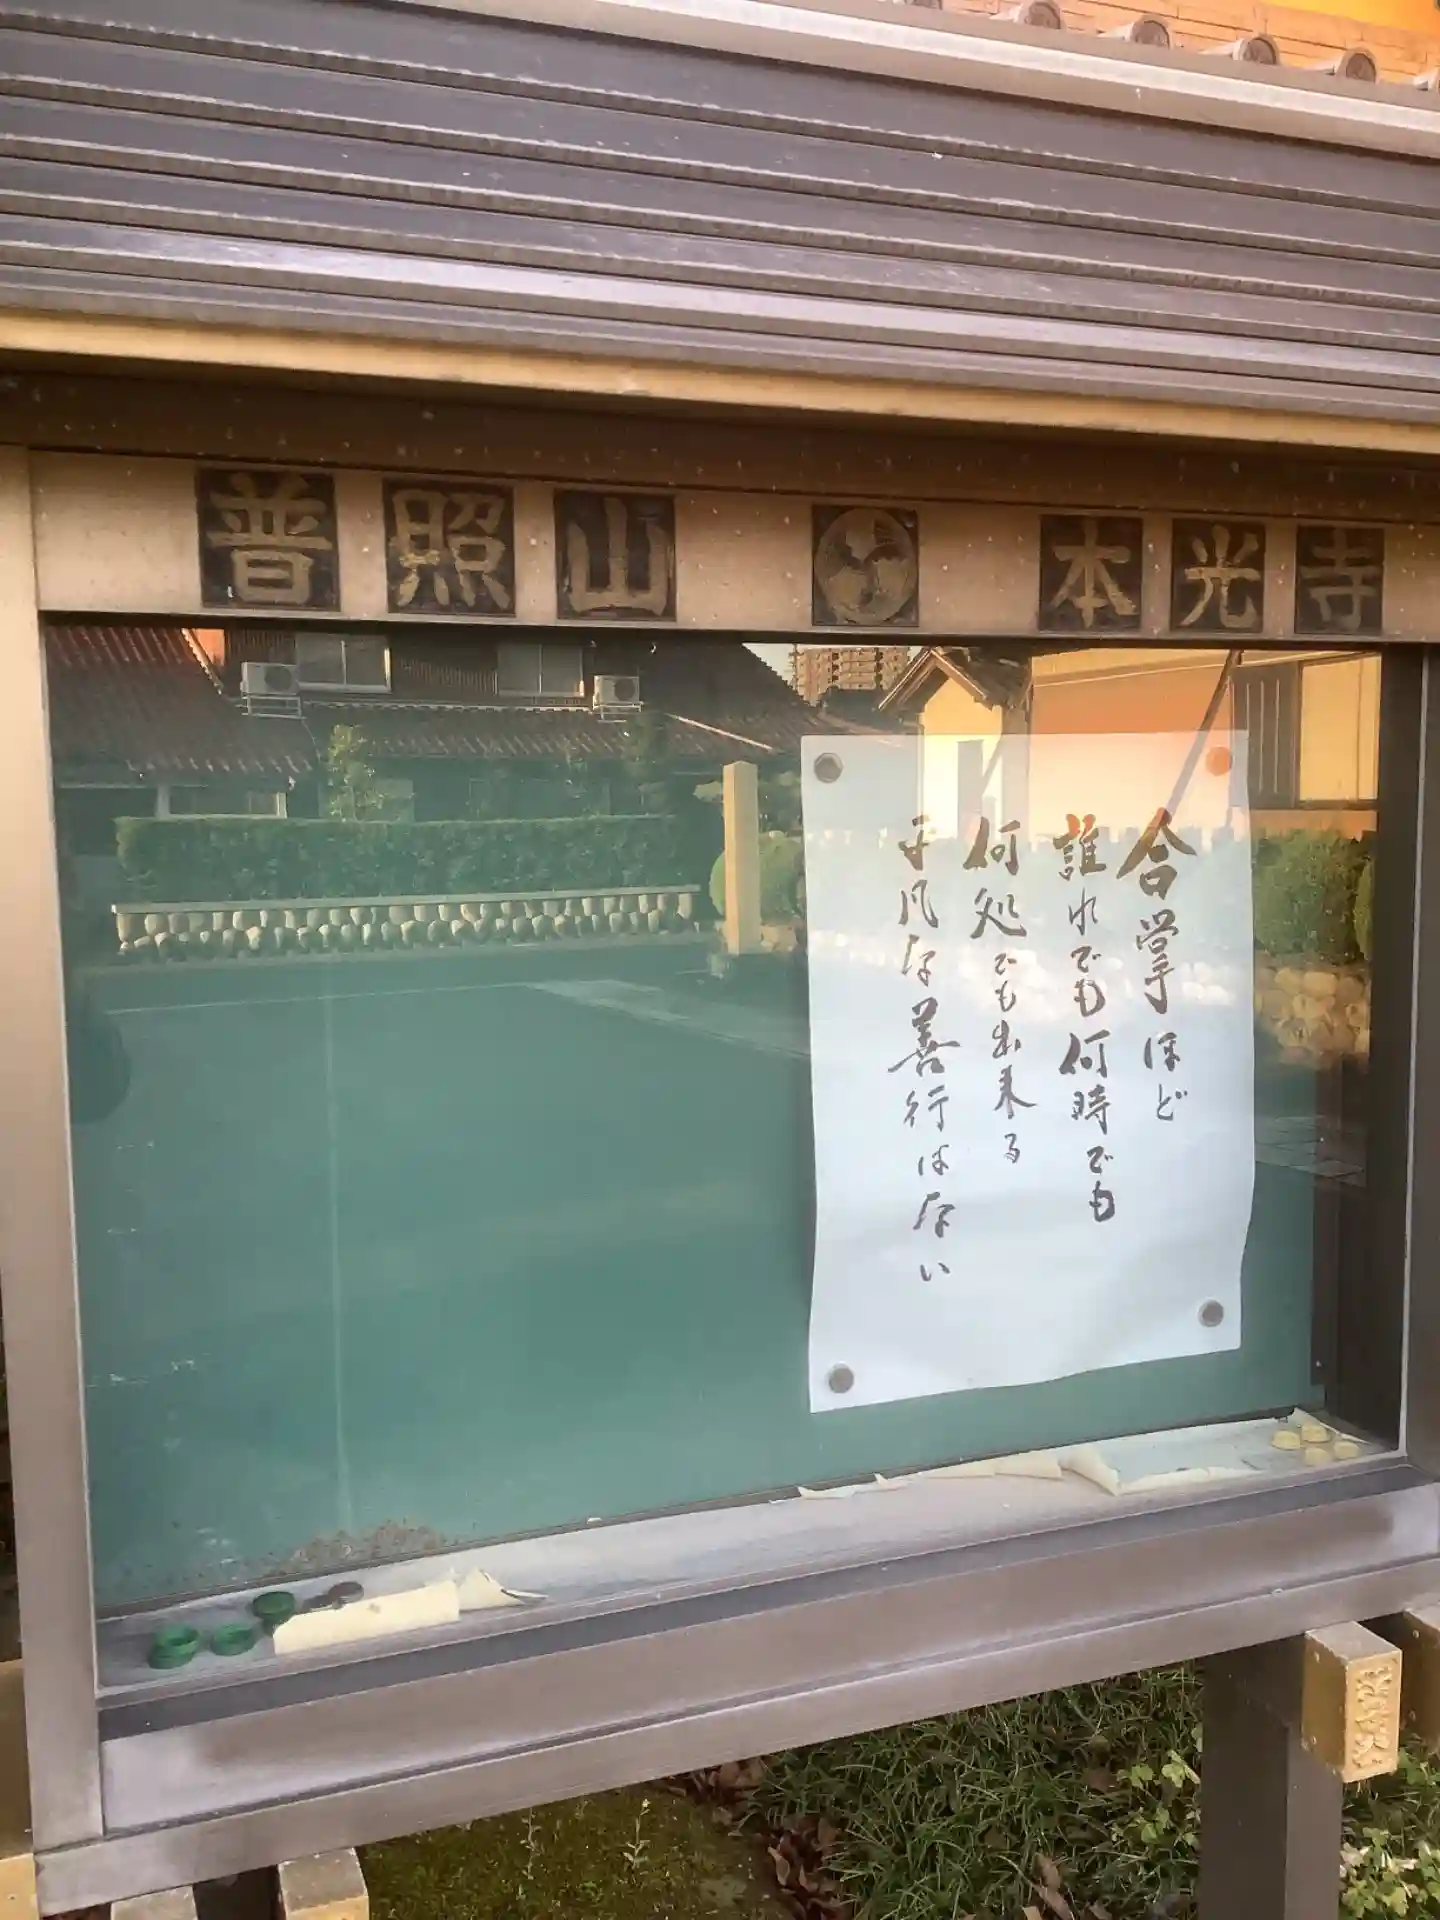 普照山 本光寺
合掌ほど
誰れでも何時でも
何処でも出来る
平凡な善行はない